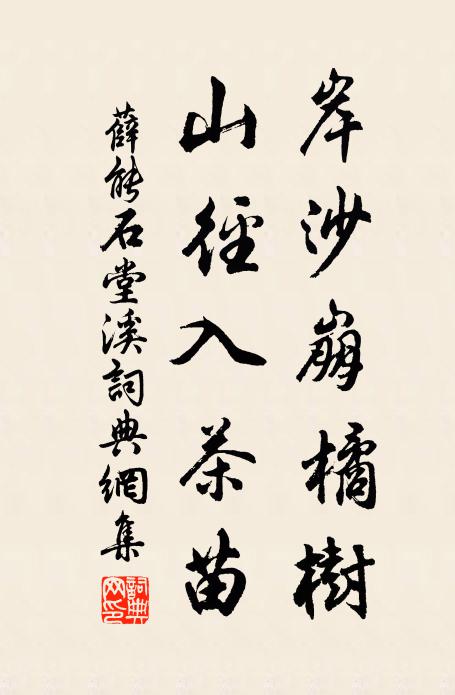 岸沙崩橘樹
山徑入茶苗
薛能石堂溪詞典網集
詞典網印